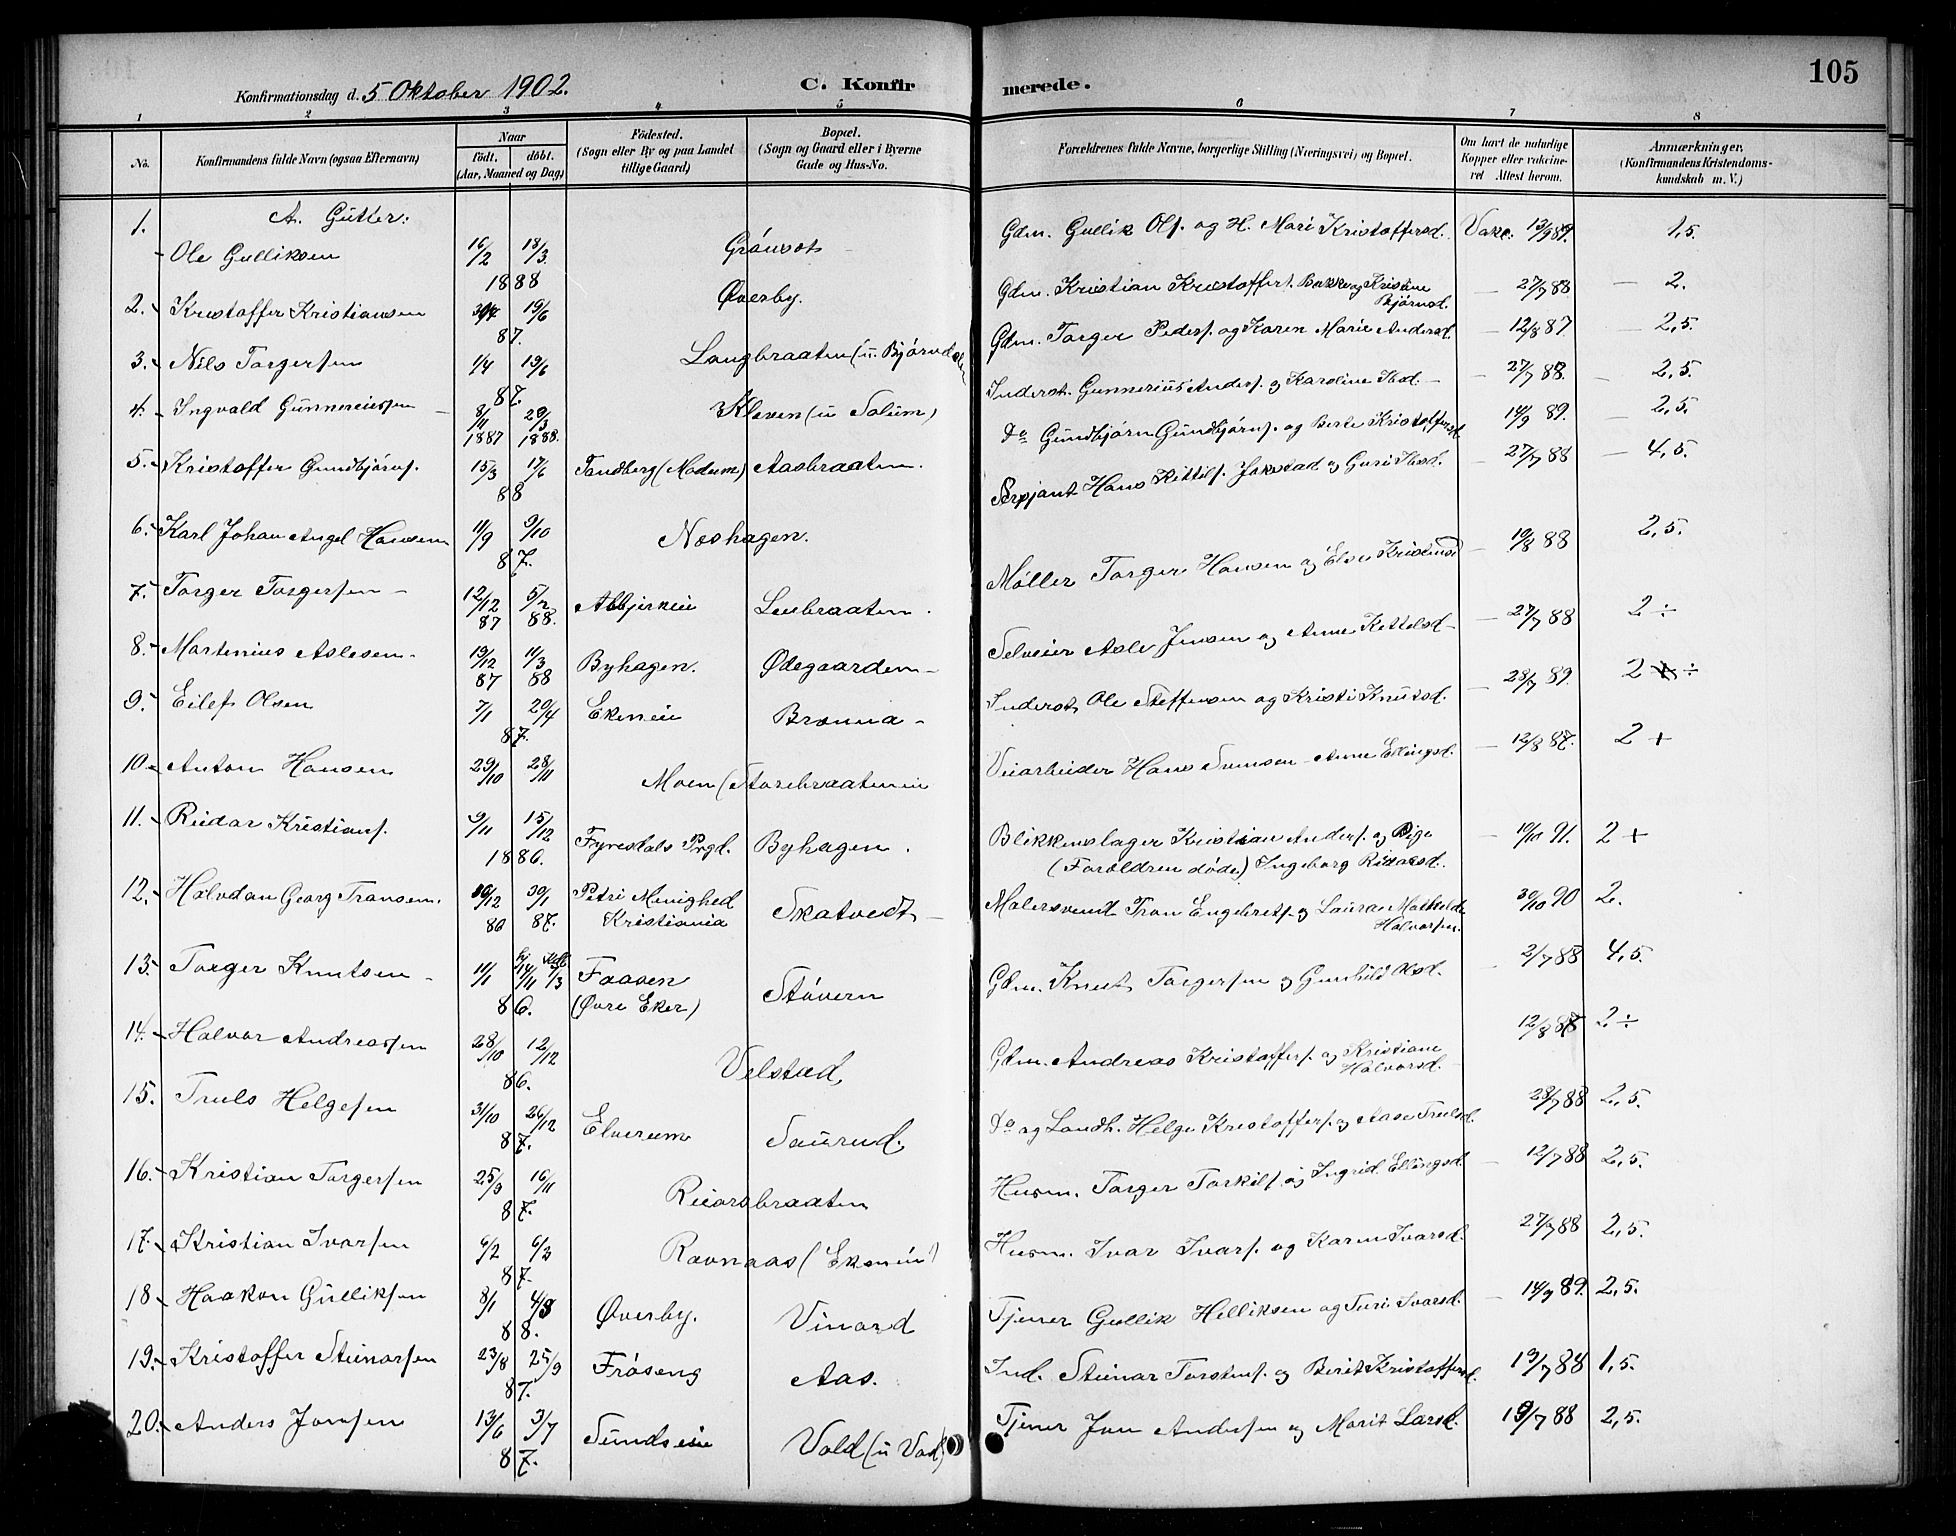 105
Konfirmationsdag d. 5 Oktober 1902.
C. Konfirmerede.
1 2 3 4 5 6 7 8
No.
Konfirmandens fulde Navn (ogsaa Efternavn)
Naar
födt. döbt.
(Aar, Maaned og Dag)
Födested.
(Sogn eller By og paa Landet
tillige Gaard)
Bopæl.
(Sogn og Gaard eller i Byerne
Gade og Hus-No.
Forældrenes fulde Navne, borgerlige Stilling (Næringsvei) og Bopæl.
Om havt de naturlige
Kopper eller vaccineret
Attest herom.
Anmærkninger.
(Konfirmandens Kristendomskundskab
m. V.)
A. Gutter:
1. Ole Gulliksen 16/2 18/3 1888 Grönsot Gdm. Gullik Ols. og H. Mari Kristoffersd. Vakc. 13/9 89. 1,5.
2. Kristoffer Kristiansen 19/6 87. Øverby. Gdm. Kristian Kristoffers. Bakke og Kristine Bjørnsd. 27/7 88 2.
3. Nils Torgersen 1/4 19/6 87. Langbraaten (u. Bjørndalen Gdm. Torger Peders. og Karen Marie Andersd. 12/8 87 2,5.
4. Ingvald Gunneriussen 8/11 1887 29/3 1888. Kleven (u Solum) Inderst. Gunnerius Anders. og Karoline Ibsd. 27/7 88. 2,5.
5. Kristoffer Gundbjörns. 15/3 17/6 88 Tandberg (Modum) Aasbraaten. Do Gundbjörn Gundbjörns. og Berte Kristoffersd. 14/9 89. 2,5.
6. Karl Johan Angel Hansen 11/9 9/10 87. Næshagen. Sersjant Hans Kittils. Jokstad og Guri Ibsd. 27/7 88 4,5.
7. Torger Torgersen 12/12 87 5/2 88. Leubraaten. Møller Torger Hansen og Else 19/8 88 2,5.
8. Martenius Aslesen 19/12 87 11/3 88 Byhagen. Ødegaarden Selveier Asle Jensen og Anne Kittelsd. 27/7 88 2 ÷
9. Eilef Olsen 7/1 20/4 87. Ekereie Brænna Inderst Ole Steffensen og Kristi Knutsd. 28/7 89. 2 ÷
10. Anton Hansen 29/10 28/11 Moen (Storebraateneie Veiarbeider Hans Svensen Anne Ellingsd. 12/8 87. 2 +
11. Reidar Kristians. 9/11 15/12 1886. Fyresdals Prgd. Byhagen. Blikkenslager Kristian Anders. og Pige
(Forældren døde) Ingeborg Ridarsd. 10/10 91. 2 +
12. Halvdan Georg Transen. 30/1 86 87. Petri Menighed
Kristiania Skatvedt Malersvend Tron Engebrets. og Laura Mathilde
Halvorsen. 30/10 90 2.
13. Torger Knutsen 11/1 86. Faasen
(Øvre Eker) Støvern Gdm. Knut Torgersen og Gunhild Olsd. 2/7 88 4,5.
14. Halvor Andreassen 28/10 12/12 86. Velstad Gdm. Andreas Kristoffers. og Kristiane
Halvorsd. 12/8 87 2 ÷
15. Truls Helgesen 31/10 26/12 87. Elverum Saurud. Do og Landh. Helge Kristoffers. og Aase Trulsd. 28/7 88 2,5.
16. Kristian Torgersen 25/9 16/11 87. Reiersbraaten Husm. Torger Torkils. og Ingrid Ellingsd. 12/7 88 2,5.
17. Kristian Ivarsen 6/2 6/3 87. Ravnaas (Ekereie) Husm. Ivar Ivars. og Karen Ivarsd. 27/7 88 2,5.
18 Haakon Gulliksen 8/1 4/3 88. Øverby. Vinord Tjener Gullik Helliksen og Turi Ivarsd. 14/9 89. 2,5.
19. Kristoffer Steinarsen 23/8 25/9 87. Frøseng Aas. Ind. Steinar Torstens. og Berit Kristoffersd. 19/7 88 1,5.
20. Anders Jonsen 13/6 3/7 87. Sundseie Vold (u Vad) Tjener Jon Andersen og Marit Larsd. 19/7 88 2,5.